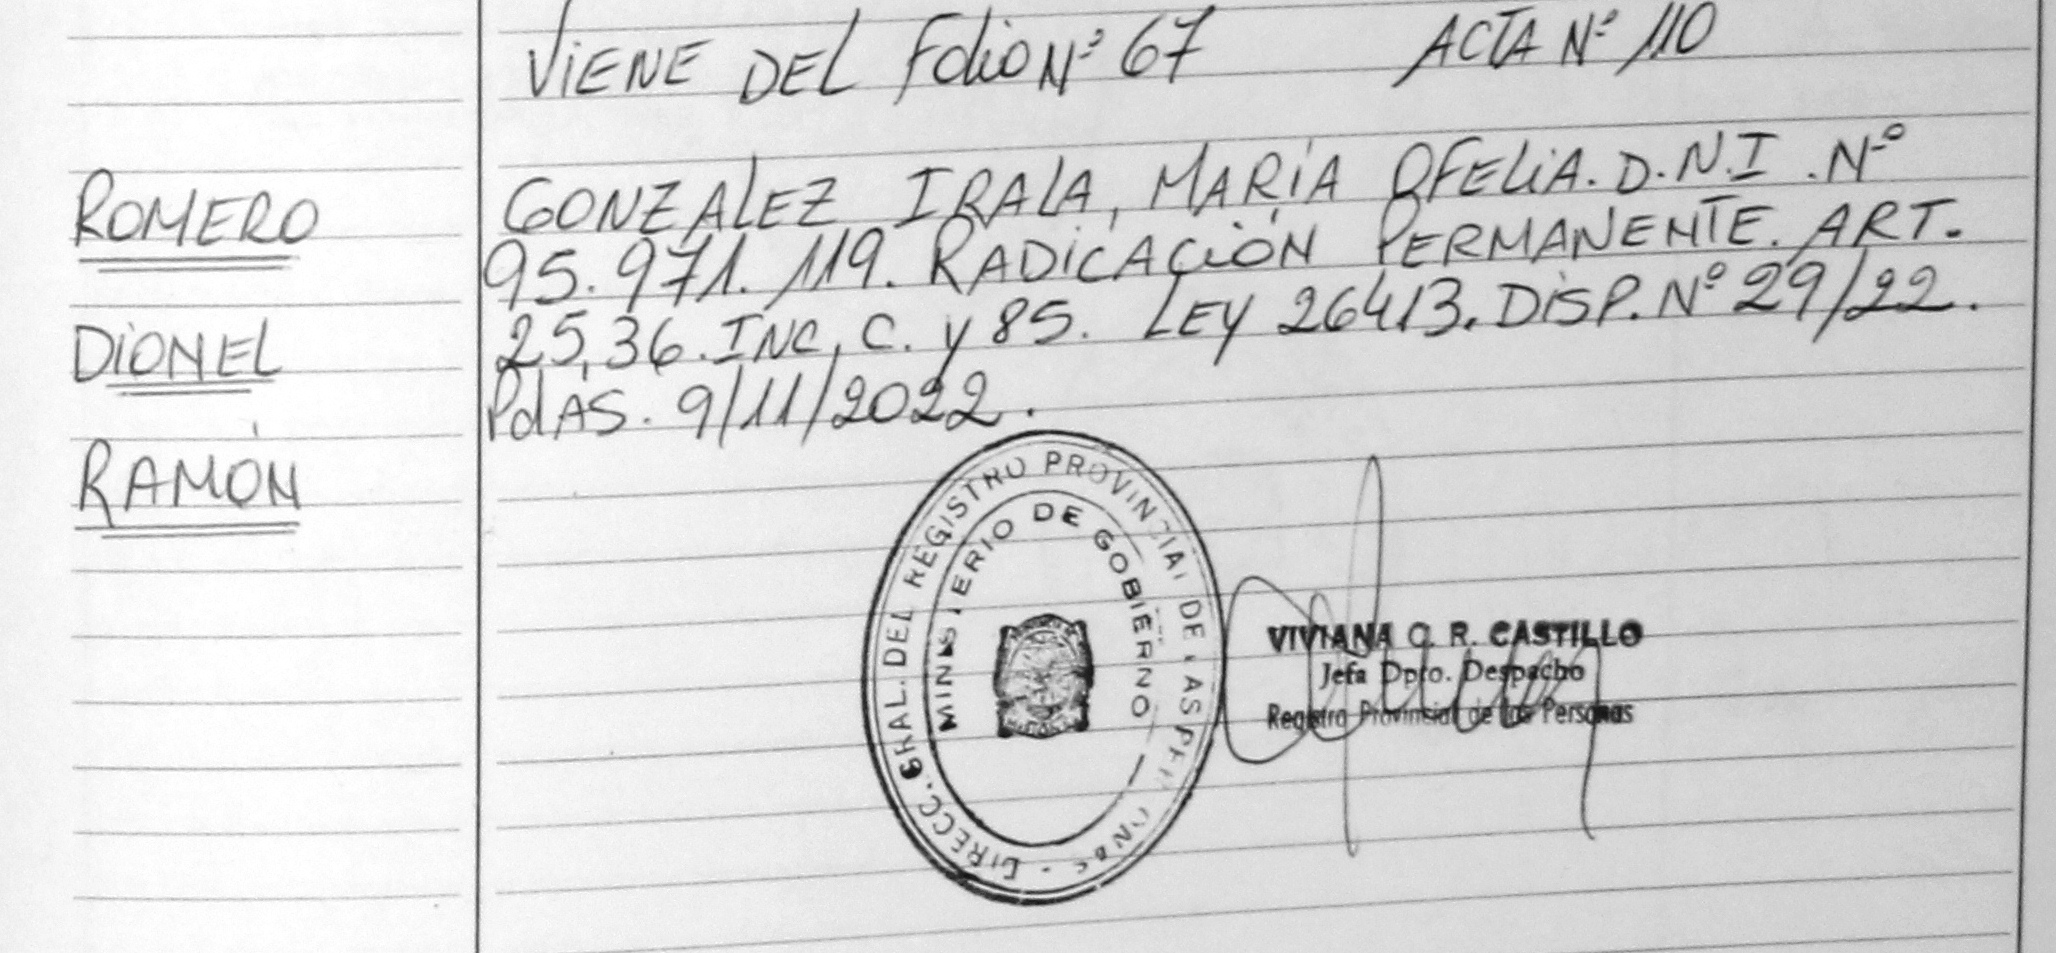 VIENE DEL Folio Nº 67 ACTA Nº 110
ROMERO
DIONEL
RAMÓN
GONZALEZ IRALA, MARÍA OFELIA. D.N.I. Nº
95.971.119. RADICACIÓN PERMANENTE. ART.
25,36. INC, C. y 85. LEY 26413. DISP. Nº 29/22.
PdAS. 9/11/2022.
DIRECC. GRAL. DEL REGISTRO PROVINCIAL DE LAS PERSONAS
MINISTERIO DE GOBIERNO
VIVIANA C. R. CASTILLO
Jefa Dpto. Despacho
Registro Provincial de las Personas